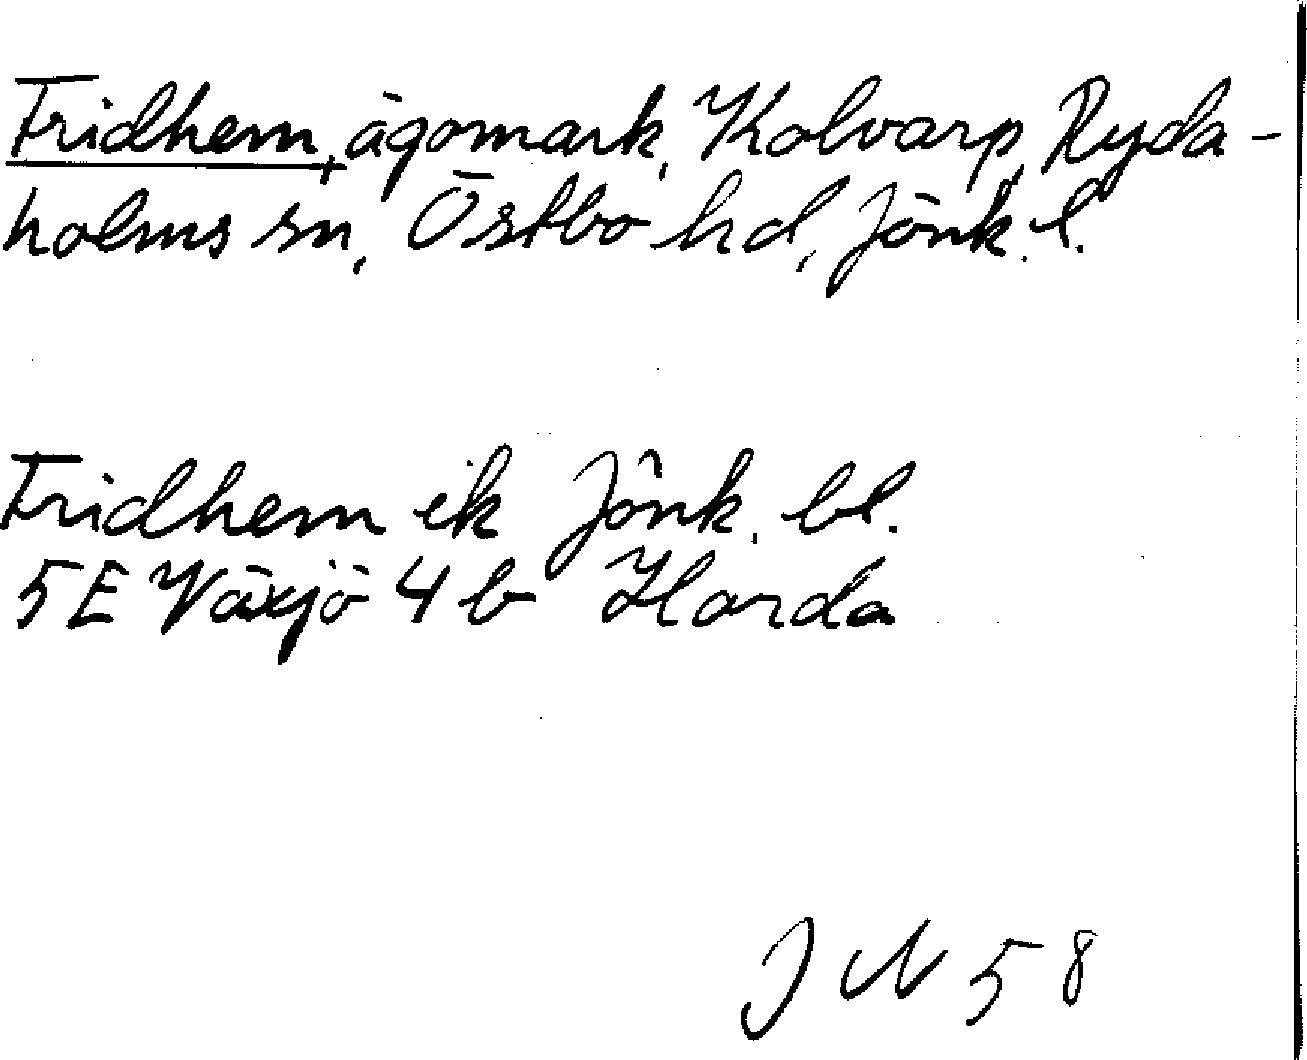 Fridhem, ägomark, Kolvarp, Ryda-
holms sn, Östbo hd, Jönk. l.
Fridhem ek Jönk. bl.
5E Växjö 4 b Horda
J N 58